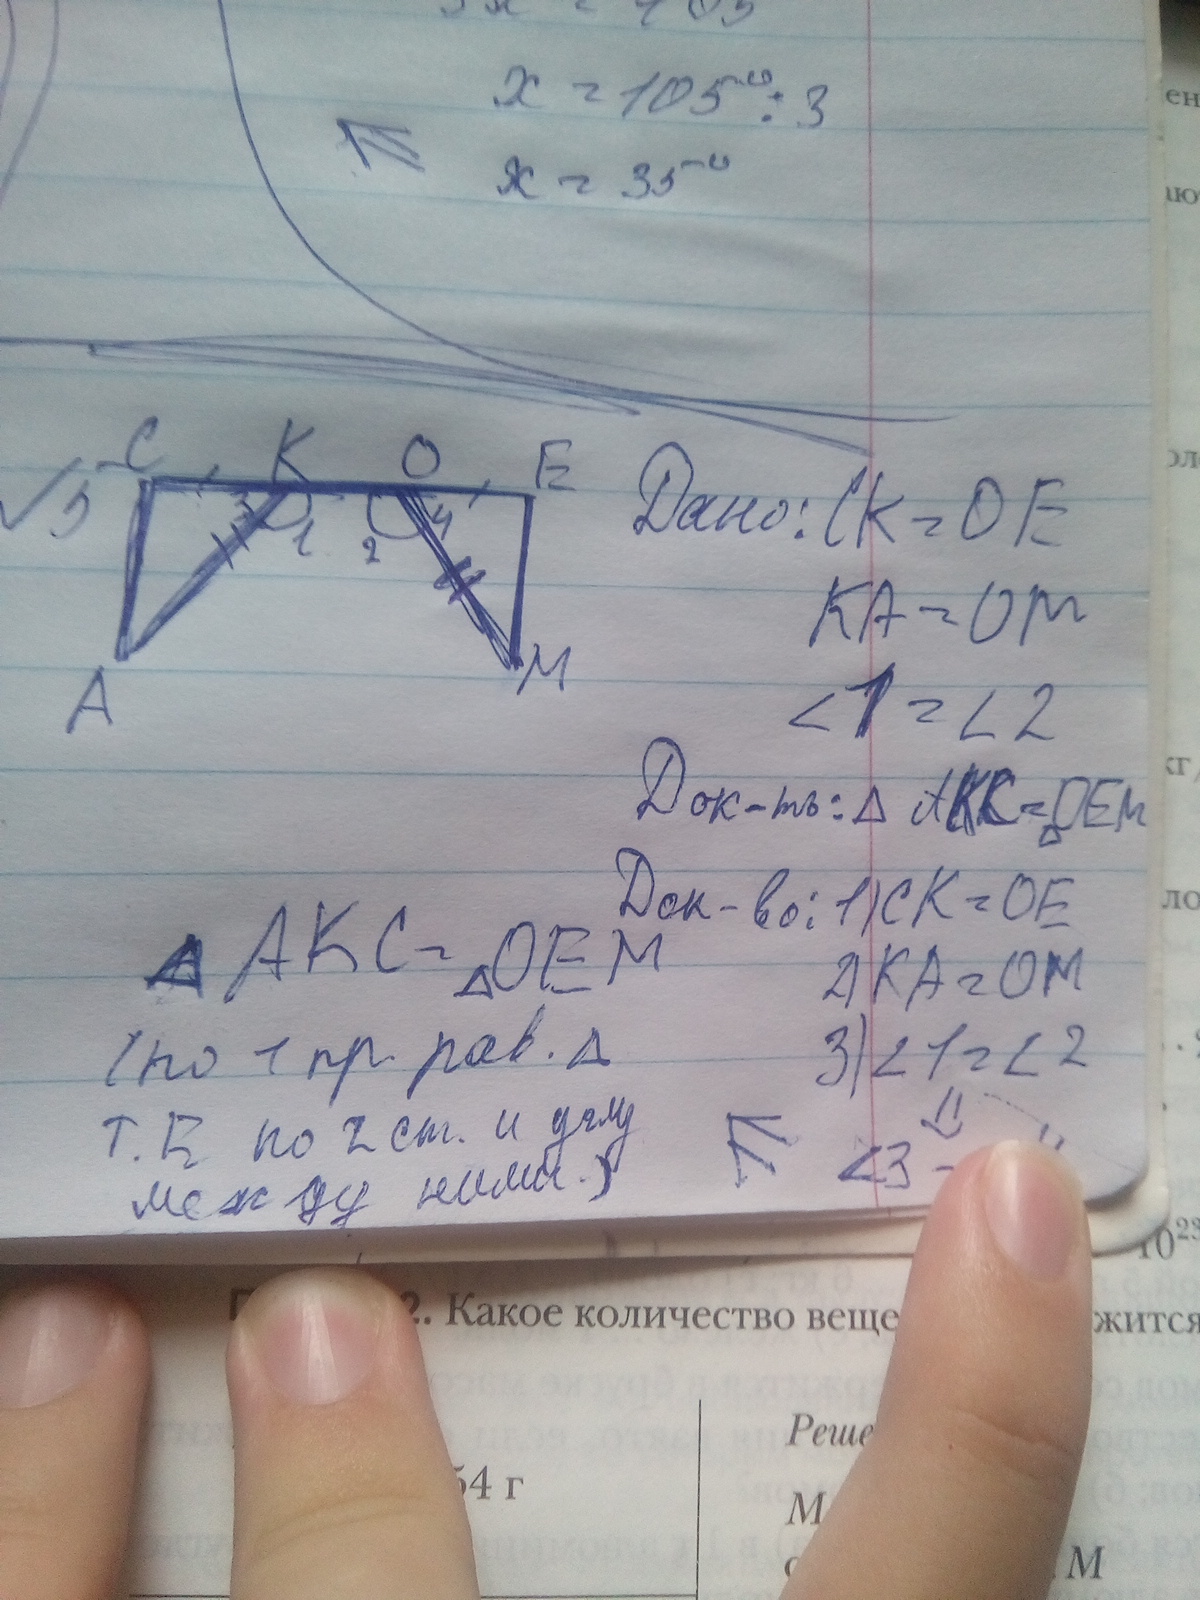 x = 105° : 3
x = 35°
√5
C K O E
3 1 2 4
A M
Дано: CK = OE
KA = OM
∠1 = ∠2
Док-ть: Δ AKC = Δ OEM
Док-во: 1) CK = OE
2) KA = OM
3) ∠1 = ∠2
∠3
Δ AKC = Δ OEM
(по 1 пр. рав. Δ
т.Е по 2 ст. и углу
между ними.)
10²³
2. Какое количество веще
жится
54 г
Реше
М
М